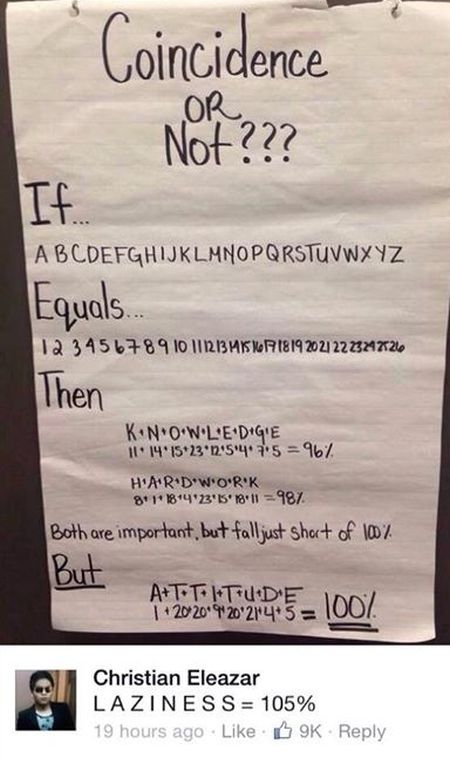 Coincidence
OR
Not???
If...
A B C D E F G H I J K L M N O P Q R S T U V W X Y Z
Equals...
1 2 3 4 5 6 7 8 9 10 11 12 13 14 15 16 17 18 19 20 21 22 23 24 25 26
Then
K+N+O+W+L+E+D+G+E
11+14+15+23+12+5+4+7+5 = 96%
H+A+R+D+W+O+R+K
8+1+18+4+23+15+18+11 = 98%
Both are important, but fall just short of 100%
But
A+T+T+I+T+U+D+E
1+20+20+9+20+21+4+5 = 100%
Christian Eleazar
L A Z I N E S S = 105%
19 hours ago · Like · 9K · Reply